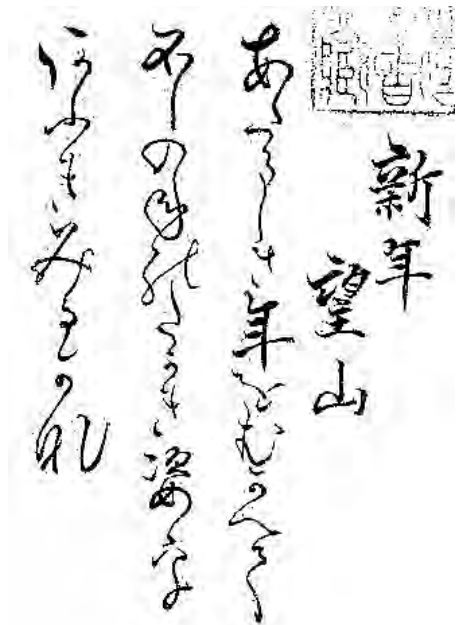 新年
望山
あたらしき年をむかへて
ふしのねのたかき姿を
あふきみるかな